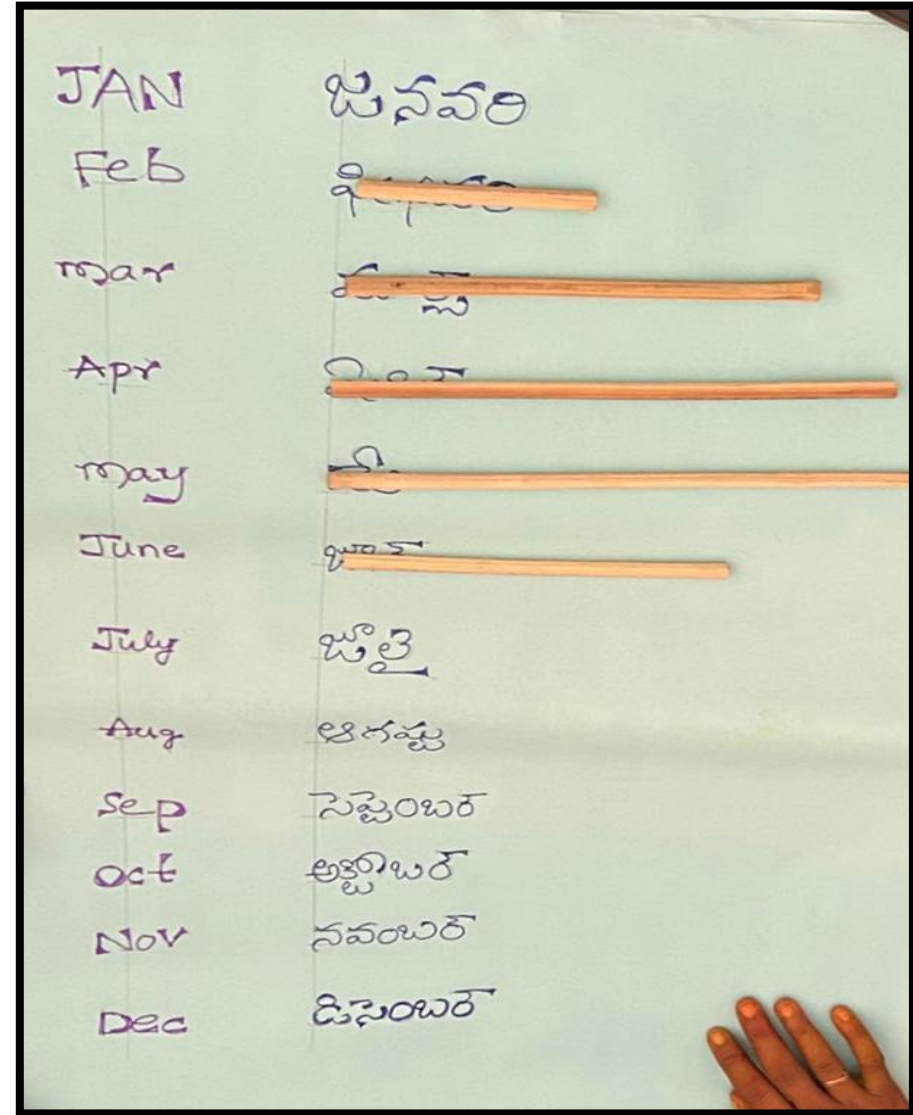 JAN జనవరి
Feb
Mar
Apr
May
June
July జూలై
Aug ఆగష్టు
Sep సెప్టెంబర్
Oct అక్టోబర్
Nov నవంబర్
Dec డిసెంబర్